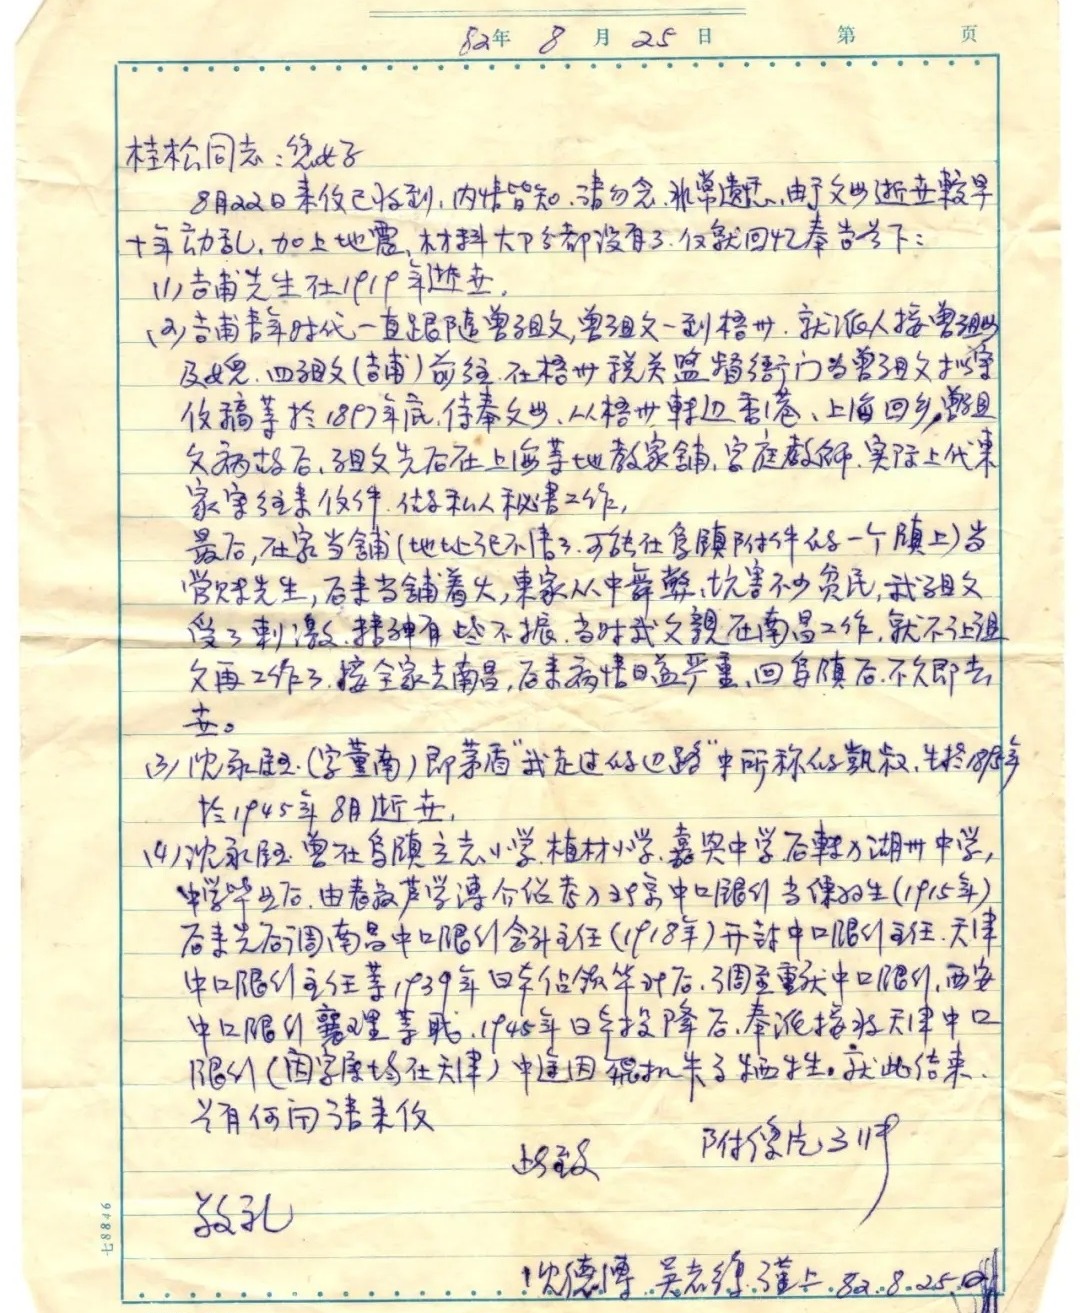 82年 8 月 25 日 第 页
桂松同志：您好
8月22日来信已收到，内情皆知，请勿念，非常遗憾，由于父母逝世较早
十年动乱，加上地震，材料大部分都没有了，仅就回忆奉告如下：
(1)吉甫先生在1919年逝世。
(2)吉甫青年时代一直跟随曾祖父，曾祖父一到梧州，就派人接曾祖母
及女儿、四祖父(吉甫)前往，在梧州税关监督衙门当曾祖父抄写
信稿等於1897年底，侍奉父母，从梧州转迈香港、上海回乡，曾祖
父病故后，祖父先后在上海等地教家馆，家庭教师，实际上代东
家写往来信件，做私人秘书工作，
最后，在家当铺(地址记不清了，可能在乌镇附件的一个镇上)当
管账先生，后来当铺着火，东家从中舞弊，坑害不少贫民，我祖父
受了刺激，精神有些不振，当时我父亲在南昌工作，就不让祖
父再工作了，接全家去南昌，后来病情日益严重，回乌镇后，不久即去
世。
(3)沈永钰(字董南)即茅盾"我走过的道路"中所称的凯叔，生於1895年
於1945年8月逝世，
(4)沈永钰曾在乌镇立志小学，植材小学，嘉兴中学，后转入湖州中学，
中学毕业后，由卢学溥介绍考入北京中国银行当练习生(1915年)
后来先后调南昌中国银行会计主任(1918年)开封中国银行主任，天津
中国银行主任等1939年日本占领华北后，调至重庆中国银行，西安
中国银行襄理等职，1945年日本投降后，奉派接收天津中国
银行(因家属均在天津)中途因飞机失事牺牲。就此结束，
如有何问请来信
此致 附像片3帧
敬礼
沈德溥 吴 谨上 82.8.25
七8846